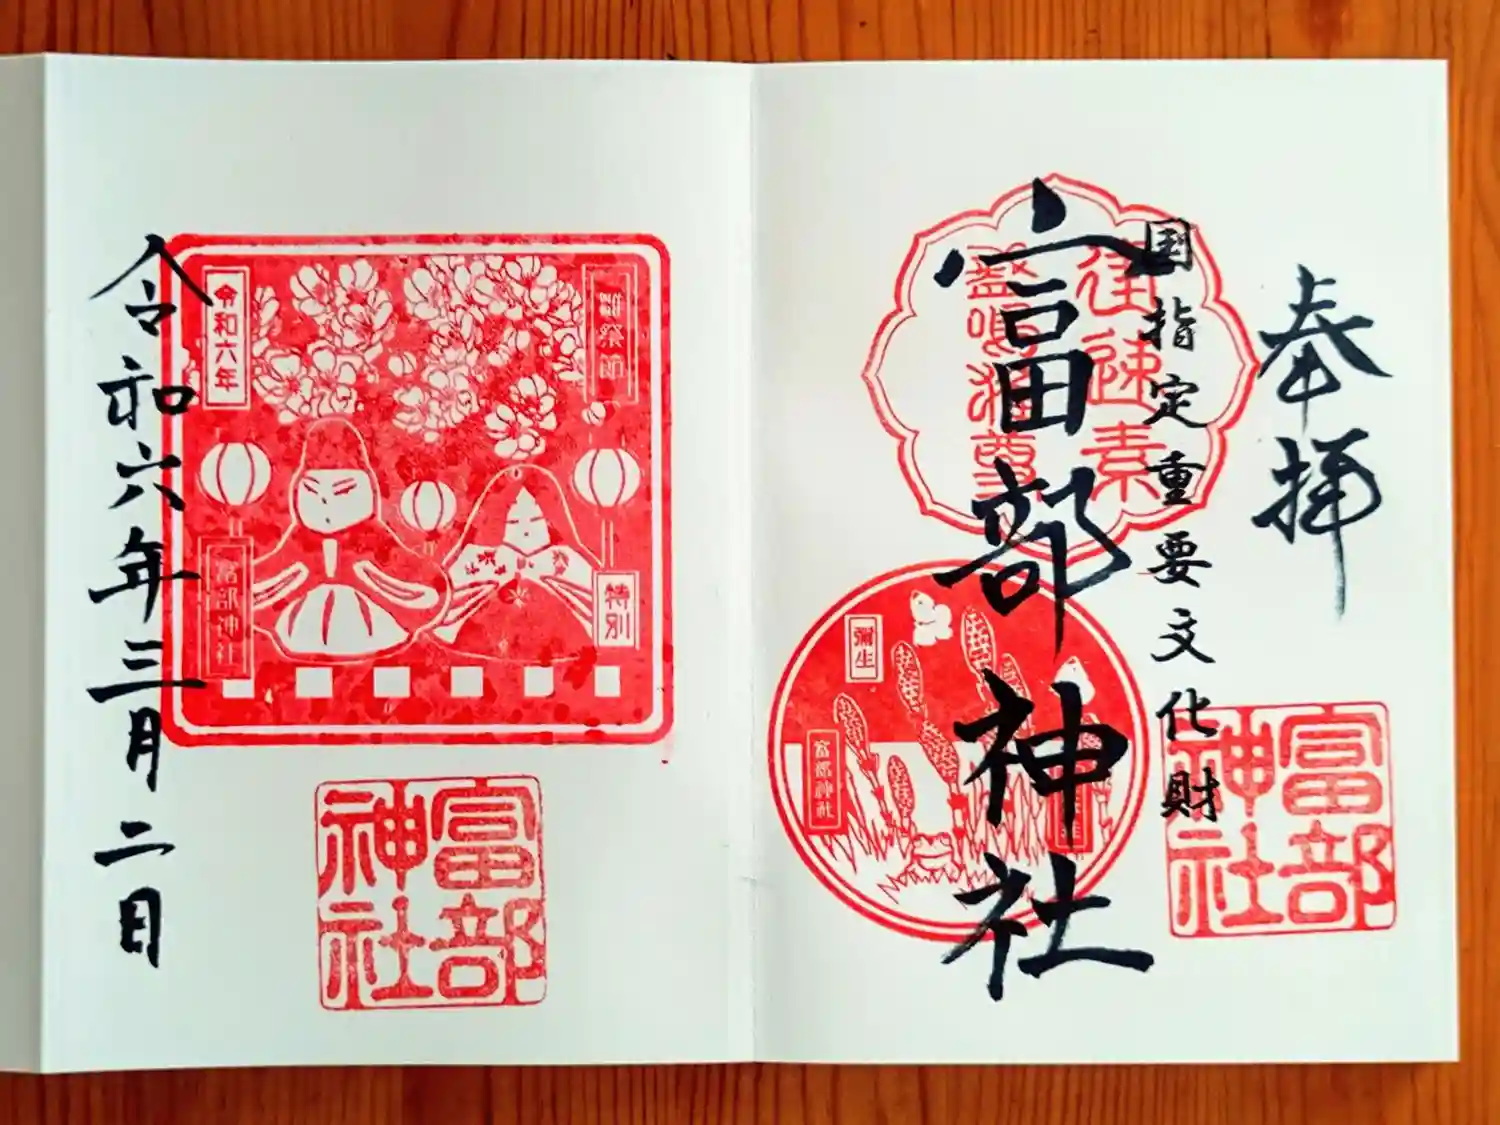 奉拝
国指定重要文化財
富部神社
富部
神社
御陳素
盞鳴尊
彌生
富部神社
雛祭節
特別
令和六年
富部神社
富部
神社
令和六年三月二日